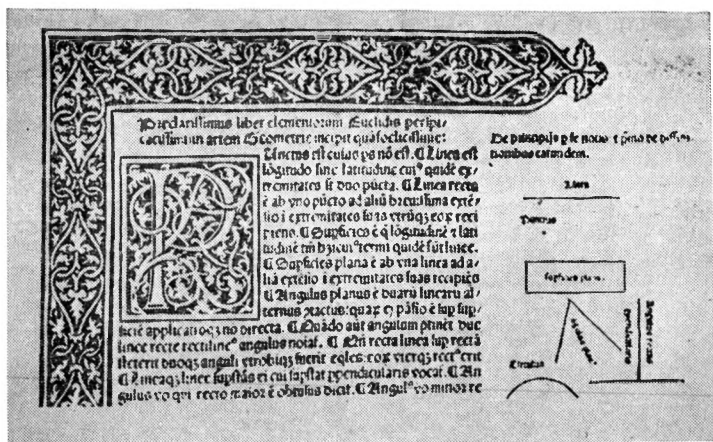 Preclarissimus liber elementorum Euclidis perspi-
cacissimi: in artem Geometrie incipit quafoelicissime:
Punctus est cuius ps nō est. ¶ Linea est
lōgitudo sine latitudine cuiꝰ quidē ex-
tremitates sī duo pūcta. ¶ Linea recta
ē ab vno pūcto ad aliū breuissima extē-
sio ī extremitates suas vtrūqꝫ eoꝝ reci
piens. ¶ Supficies ē q̄ lōgitudinē ⁊ lati
tudinē tm̄ hꝫ: cuiꝰ termi quidē sūt linee.
¶ Supficies plana ē ab vna linea ad a-
liā extēsio ī extremitates suas recipiēs
¶ Angulus planus ē duarū linearū al-
ternus ɔtactus: quaꝝ expāsio ē sup sup-
ficiē applicatioqꝫ nō directa. ¶ Quādo aūt angulum ɔtinēt due
linee recte rectilineꝰ angulus noiat̄. ¶ Qn̄ recta linea sup rectā
steterit duoqꝫ anguli vtrobiqꝫ fuerīt eq̄les: eoꝝ vterqꝫ rectꝰ erit
¶ Lineaqꝫ linee supstās ei cui supstat ppendicularis vocat̄. ¶ An
gulus vo qui recto maior ē obtusus dicit̄. ¶ Angulꝰ vo minor re
De principijs p se notis: ⁊ pmo de diffini
tionibus earundem.
Linea
Punctus
Supficies plana
Circulus